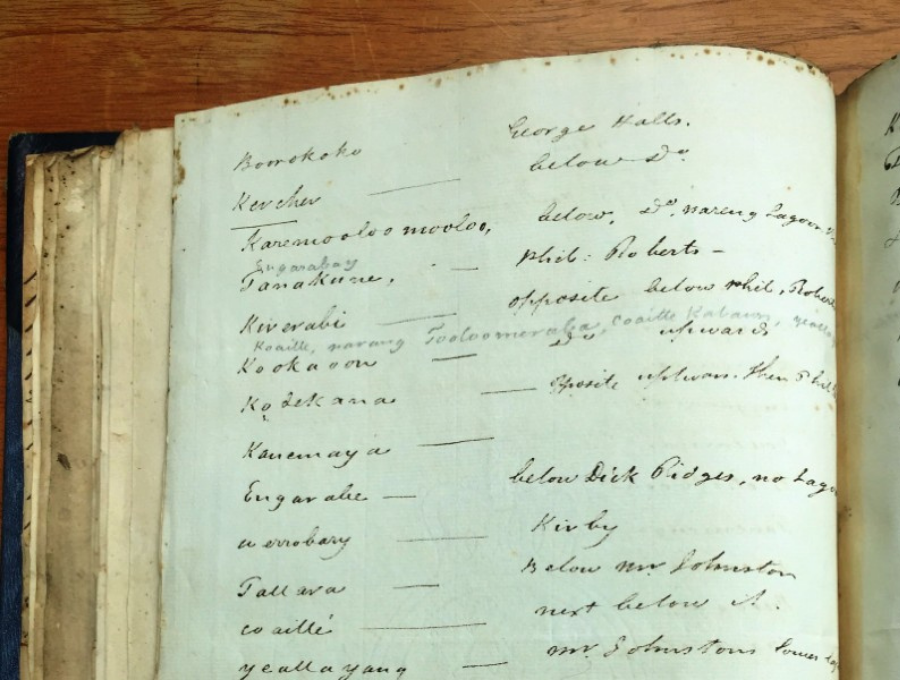 Borrokoko George Halls.
Kercher — below Do
Karemooloo mooloo, below, Do, nareng Lagoon
Engarabay
Tanakune, — Phil: Roberts —
Kiverabi — opposite below Phil, Roberts
Koaille, narang Tooloomeraba, Coaille Kabaun,
Kookaoon — Do upwards
Kotekana — opposite upwars. then
Kanemaya —
Engarabe — below Dick Ridges, no Lagoon
werrobary — Kirby
Tallara — Below Mr Johnston
coaillé — next below it.
yeallayang — Mr Johnstons lower